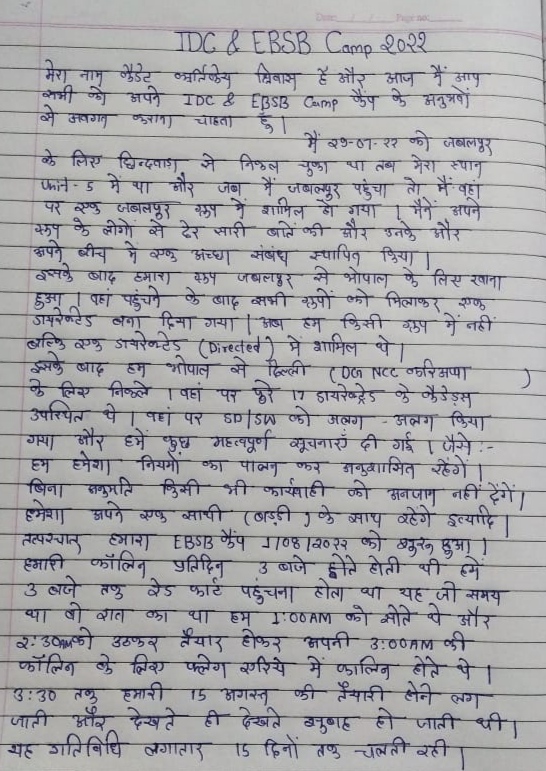 IDC & EBSB Camp 2022
मेरा नाम कैडेट कार्तिकेय विश्वास है और आज मैं आप
सभी को अपने IDC & EBSB Camp कैंप के अनुभवों
से अवगत कराना चाहता हूँ।
मैं 29-07-22 को जबलपुर
के लिए छिन्दवाड़ा से निकल चुका था तब मेरा स्थान
Unit-5 में था और जब मैं जबलपुर पहुंचा तो मैं वहां
पर एक जबलपुर ग्रुप में शामिल हो गया। मैंने अपने
ग्रुप के लोगों से ढेर सारी बातें की और उनके और
अपने बीच में एक अच्छा संबंध स्थापित किया।
इसके बाद हमारा ग्रुप जबलपुर से भोपाल के लिए रवाना
हुआ। वहां पहुंचने के बाद सभी ग्रुपों को मिलाकर एक
डायरेक्टेड बना दिया गया। अब हम किसी ग्रुप में नहीं
बल्कि एक डायरेक्टेड (Directed) में शामिल थे।
इसके बाद हम भोपाल से दिल्ली (DGNCC करिअप्पा )
के लिए निकले। वहां पर पूरे 17 डायरेक्ट्रेड के कैडेट्स
उपस्थित थे। वहां पर SD/SW को अलग - अलग किया
गया और हमें कुछ महत्वपूर्ण सूचनाएं दी गई। जैसे :-
हम हमेशा नियमों का पालन कर अनुशासित रहेंगे।
बिना अनुमति किसी भी कार्यवाही को अनजाम नहीं देंगें।
हमेशा अपने एक साथी (बड्डी) के साथ रहेंगे इत्यादि।
तत्पश्चात् हमारा EBSB कैंप 1/08/2022 को शुरू हुआ।
हमारी फॉलिन प्रतिदिन 3 बजे होते होती थी हमें
3 बजे तक रेड फोर्ट पहुंचना होता था यह जो समय
था वो रात का था हम 1:00AM को सोते थे और
2:30AMको उठकर तैयार होकर अपनी 3:00AM की
फॉलिन के लिए फ्लेग एरिये में फालिन होते थे।
3:30 तक हमारी 15 अगस्त की तैयारी होने लग
जाती और देखते ही देखते सुबह हो जाती थी।
यह गतिविधि लगातार 15 दिनों तक चलती रही।